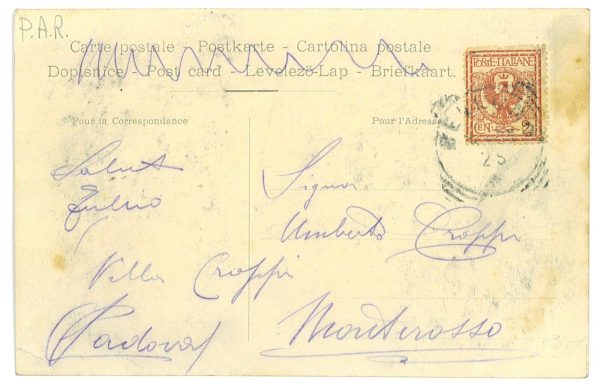 P.A.R.
Carte postale - Postkarte - Cartolina postale
Dopisnice - Post card - Levelező-Lap - Briefkaart.
POSTE ITALIANE
CEN. 2
Pour la Correspondance
Pour l'Adresse
25
Saluti
Tullio
Signor
Umberto Croppi
Villa Croppi
(Padova)
Monterosso